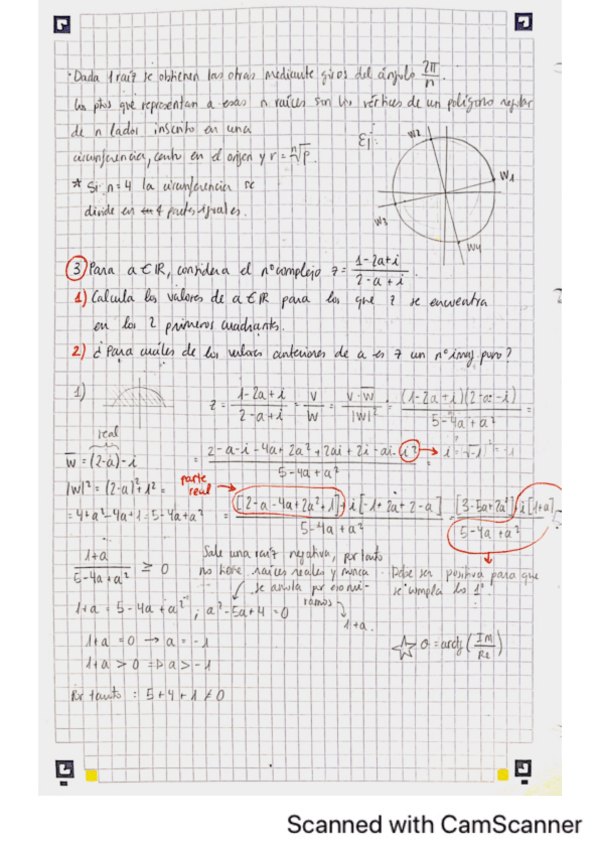 · Dada 1 raíz se obtienen las otras mediante giros del ángulo 2π/n.
Los ptos que representan a esas n raíces son los vértices de un polígono regular
de n lados inscrito en una
circunferencia, centro en el origen y r = ⁿ√ρ.
Ej:
w2
w1
w3
w4
* Si n=4 la circunferencia se
divide en 4 partes iguales.
3) Para a ∈ IR, considera el nº complejo z = (1-2a+i)/(2-a+i).
1) Calcula los valores de a ∈ IR para los que z se encuentra
en los 2 primeros cuadrants.
2) ¿Para cuáles de los valores anteriores de a es z un nº imag. puro?
1)
z = (1-2a+i)/(2-a+i) = v/w = (v·w̄)/|w|² = (1-2a+i)(2-a-i)/(5-4a+a²) =
real
w̄ = (2-a)-i
= (2-a-i-4a+2a²+2ai+2i-ai-i²)/(5-4a+a²) =
|w|² = (2-a)²+1² =
= 4+a²-4a+1 = 5-4a+a²
parte real
= ([2-a-4a+2a²+1]+i[-1+2a+2-a])/(5-4a+a²) = ([3-5a+2a²]+i[1+a])/(5-4a+a²)
(1+a)/(5-4a+a²) ≥ 0
Sale una raíz negativa, por tanto
no tiene raíces reales y nunca
se anula por eso
ramos
1+a.
Debe ser positiva para que
se cumpla los 1º
1+a = 5-4a+a² ; a²-5a+4=0
1+a = 0 → a = -1
1+a > 0 ⇒ a > -1
☆ θ = arctg (Im/Re)
Por tanto : 5+4+1 ≠ 0
Scanned with CamScanner